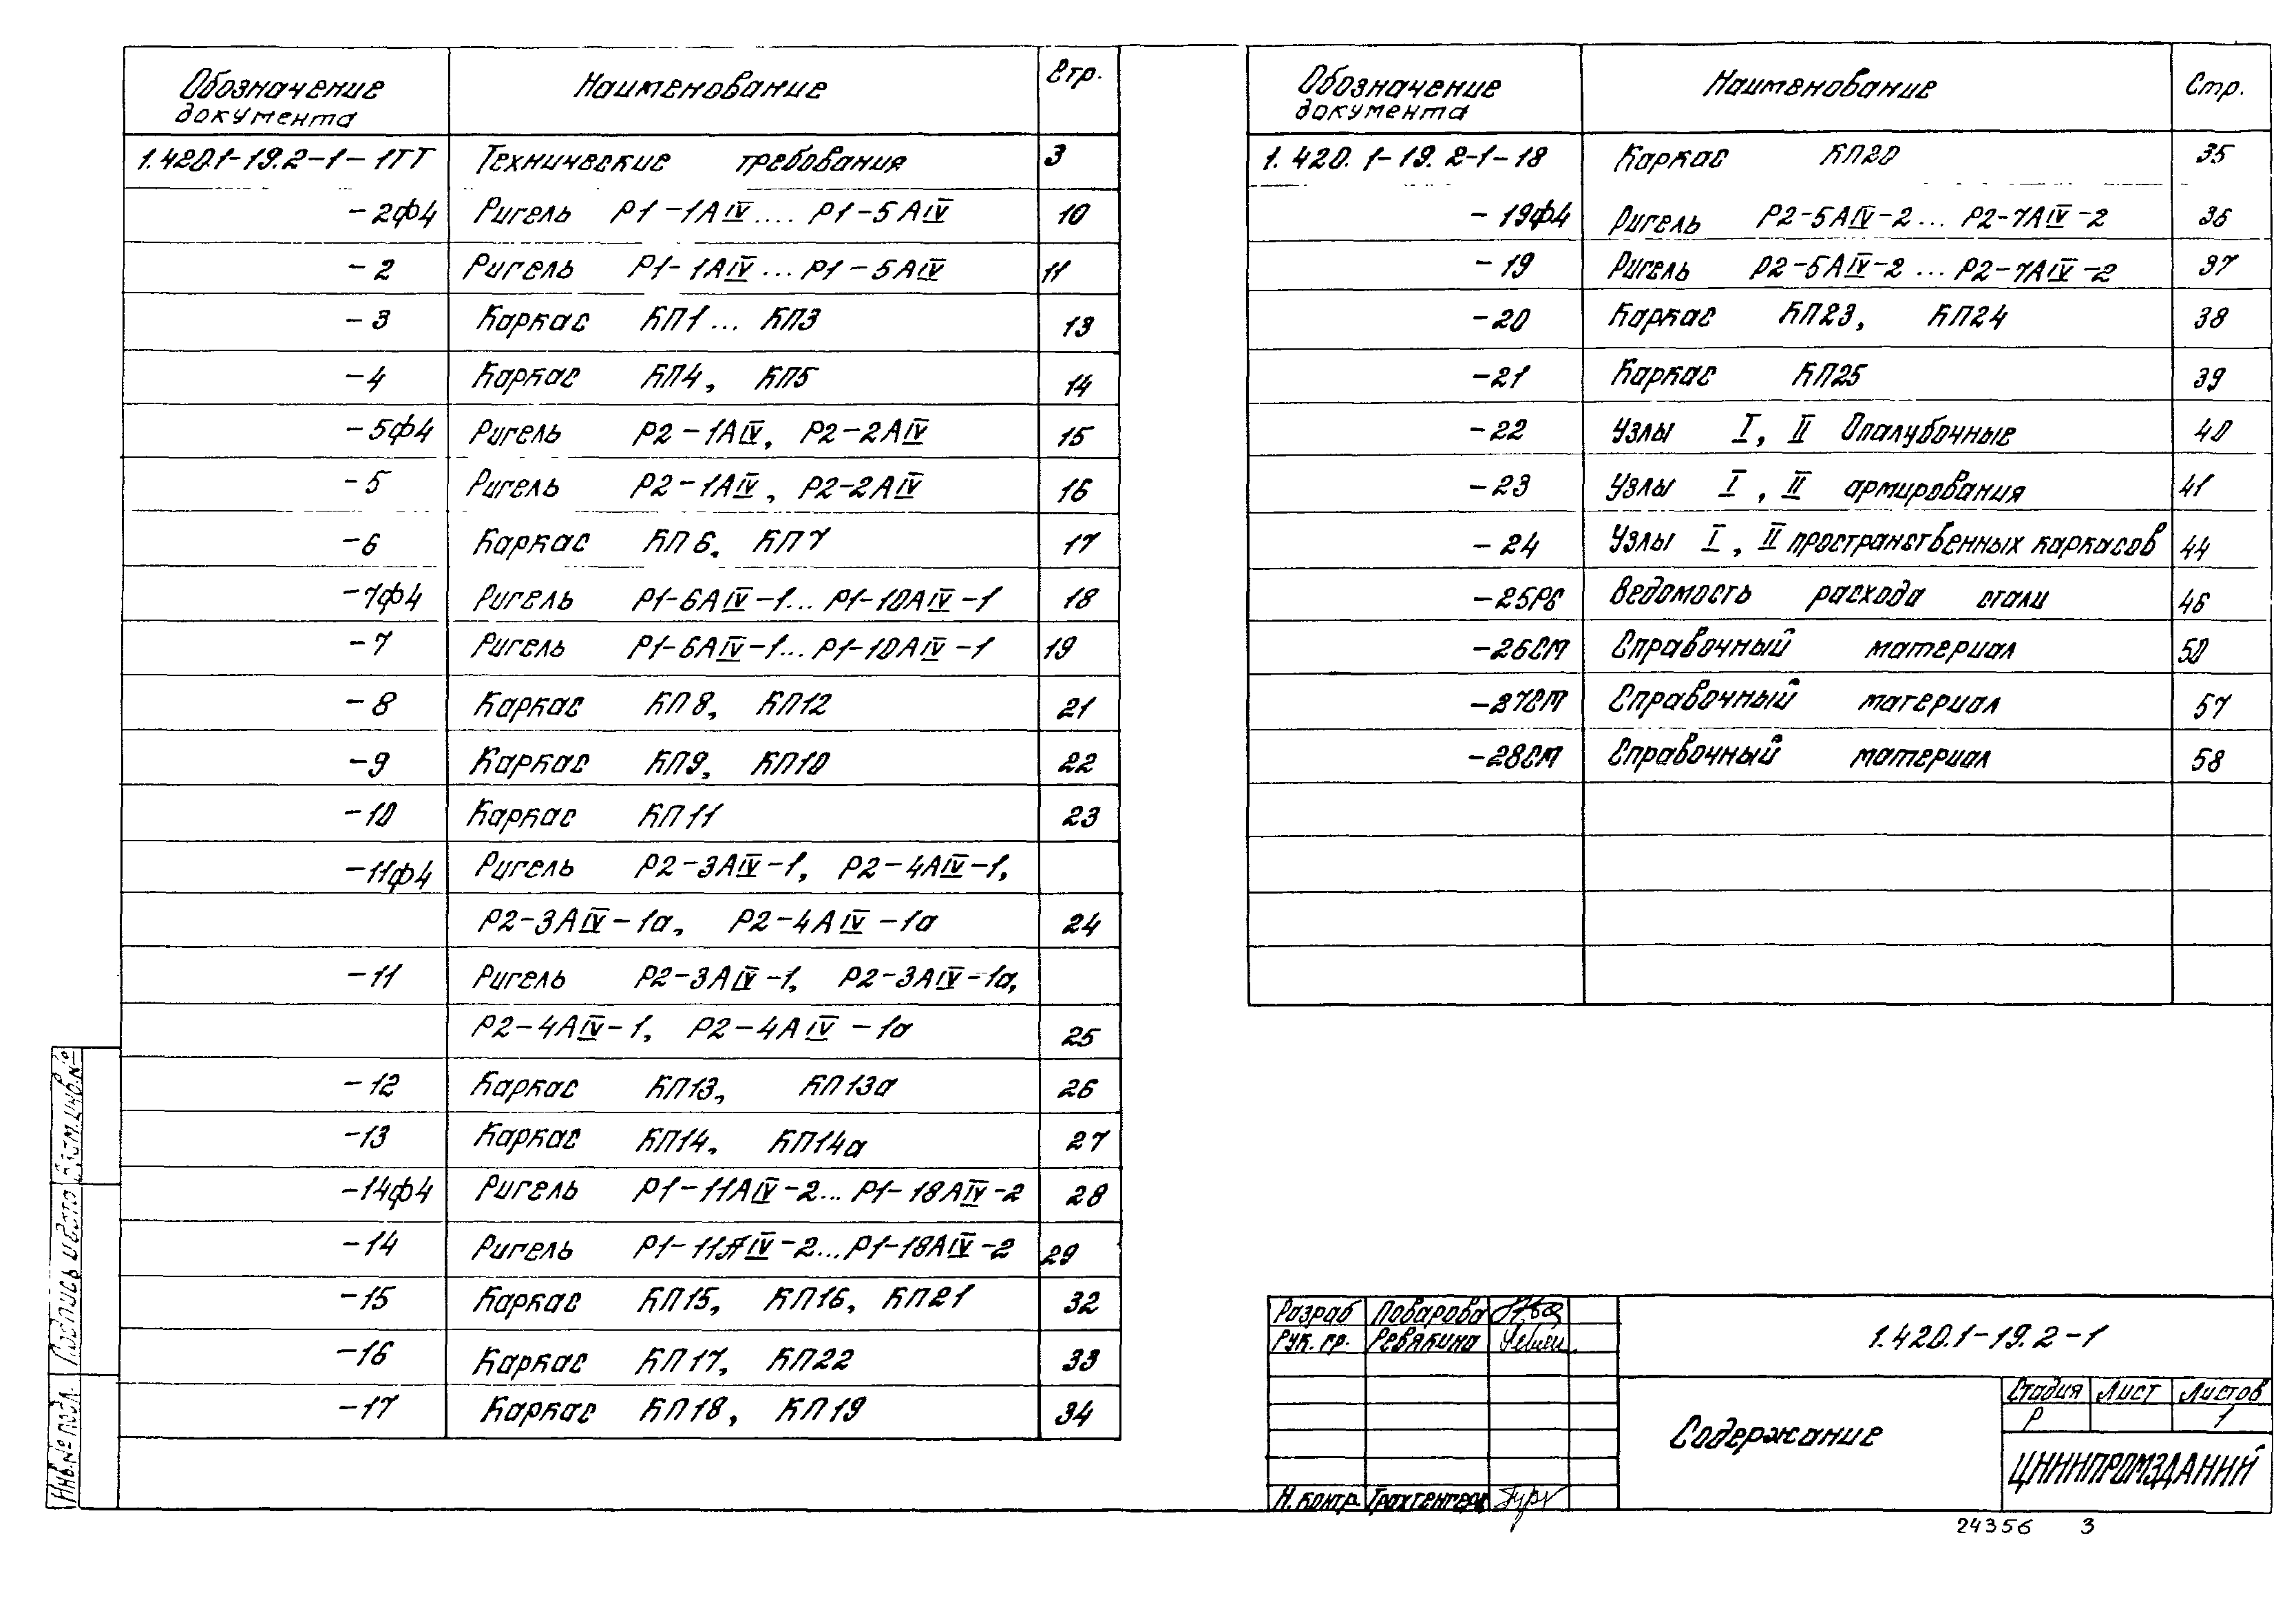 Обозначение документа Наименование Стр.
1.420.1-19.2-1-1ТТ Технические требования 3
-2ф4 Ригель Р1-1АIV.... Р1-5АIV 10
-2 Ригель Р1-1АIV... Р1-5АIV 11
-3 Каркас КП1... КП3 13
-4 Каркас КП4, КП5 14
-5ф4 Ригель Р2-1АIV, Р2-2АIV 15
-5 Ригель Р2-1АIV, Р2-2АIV 16
-6 Каркас КП6, КП7 17
-7ф4 Ригель Р1-6АIV-1... Р1-10АIV-1 18
-7 Ригель Р1-6АIV-1... Р1-10АIV-1 19
-8 Каркас КП8, КП12 21
-9 Каркас КП9, КП10 22
-10 Каркас КП11 23
-11ф4 Ригель Р2-3АIV-1, Р2-4АIV-1,
Р2-3АIV-1а, Р2-4АIV-1а 24
-11 Ригель Р2-3АIV-1, Р2-3АIV-1а,
Р2-4АIV-1, Р2-4АIV-1а 25
-12 Каркас КП13, КП13а 26
-13 Каркас КП14, КП14а 27
-14ф4 Ригель Р1-11АIV-2... Р1-18АIV-2 28
-14 Ригель Р1-11АIV-2... Р1-18АIV-2 29
-15 Каркас КП15, КП16, КП21 32
-16 Каркас КП17, КП22 33
-17 Каркас КП18, КП19 34
Обозначение документа Наименование Стр.
1.420.1-19.2-1-18 Каркас КП20 35
-19ф4 Ригель Р2-5АIV-2... Р2-7АIV-2 36
-19 Ригель Р2-5АIV-2... Р2-7АIV-2 37
-20 Каркас КП23, КП24 38
-21 Каркас КП25 39
-22 Узлы I, II Опалубочные 40
-23 Узлы I, II армирования 41
-24 Узлы I, II пространственных каркасов 44
-25РС Ведомость расхода стали 46
-26СМ Справочный материал 50
-27СМ Справочный материал 57
-28СМ Справочный материал 58
Инв.№ подл. Подпись и дата Взам.инв.№
Разраб Поварова
Рук. гр. Ревякина
Н. контр. Трахтенгерц
1.420.1-19.2-1
Содержание
Стадия Лист Листов
Р 1
ЦНИИПРОМЗДАНИЙ
24356 3